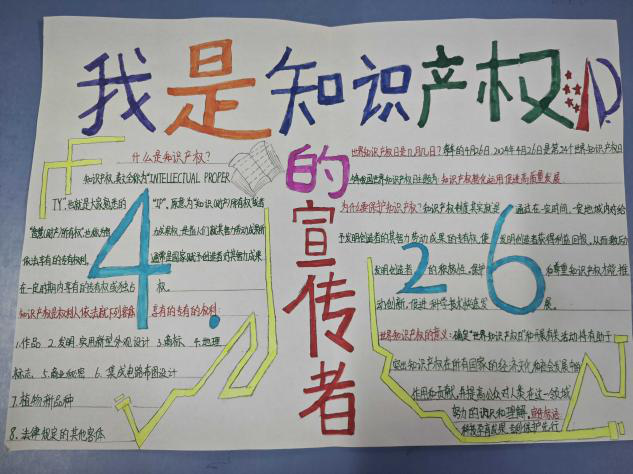 我是知识产权
的宣传者
4.26
什么是知识产权?
知识产权,英文全称为"INTELLECTUAL PROPER
TY",也就是大家熟悉的"IP",原意为"知识(财产)所有权"或者
"智慧(财产)所有权",也称为智力成果权,是指人们就其智力劳动成果所
依法享有的专有权利,通常是国家赋予创造者对其智力成果
在一定时期内享有的专有权或独占权。
知识产权是权利人依法就下列客体享有的专有的权利:
1.作品 2.发明、实用新型、外观设计 3.商标 4.地理
标志 5.商业秘密 6.集成电路布图设计
7.植物新品种
8.法律规定的其他客体
世界知识产权日是几月几日?每年的4月26日,2024年4月26日是第24个世界知识产权日
我国世界知识产权日主题为:知识产权转化运用促进高质量发展
为什么要保护知识产权?知识产权制度其实就是通过在一定时间、一定地域内给
予发明创造者的其智力劳动成果的专有权,使发明创造者获得利益回报,从而激励
发明创造者的积极性,保护和尊重知识产权才能推
动创新,促进科学技术的进步发展。
世界知识产权的意义:确定"世界知识产权日"和开展有关活动将有助于
突出知识产权在所有国家的经济文化和社会发展中的
作用和贡献,并提高公众对人类在这一领域
努力的认识和理解。